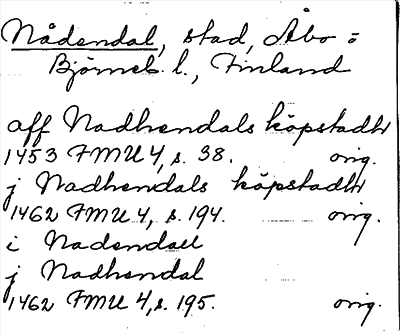 Nådendal, stad, Åbo o
Björneb. l., Finland
aff Nadhendals köpstadh
1453 FMU 4, s. 38. orig.
j Nadhendals köpstadh
1462 FMU 4, s. 194. orig.
i Nadendall
j Nadhendal
1462 FMU 4, s. 195. orig.